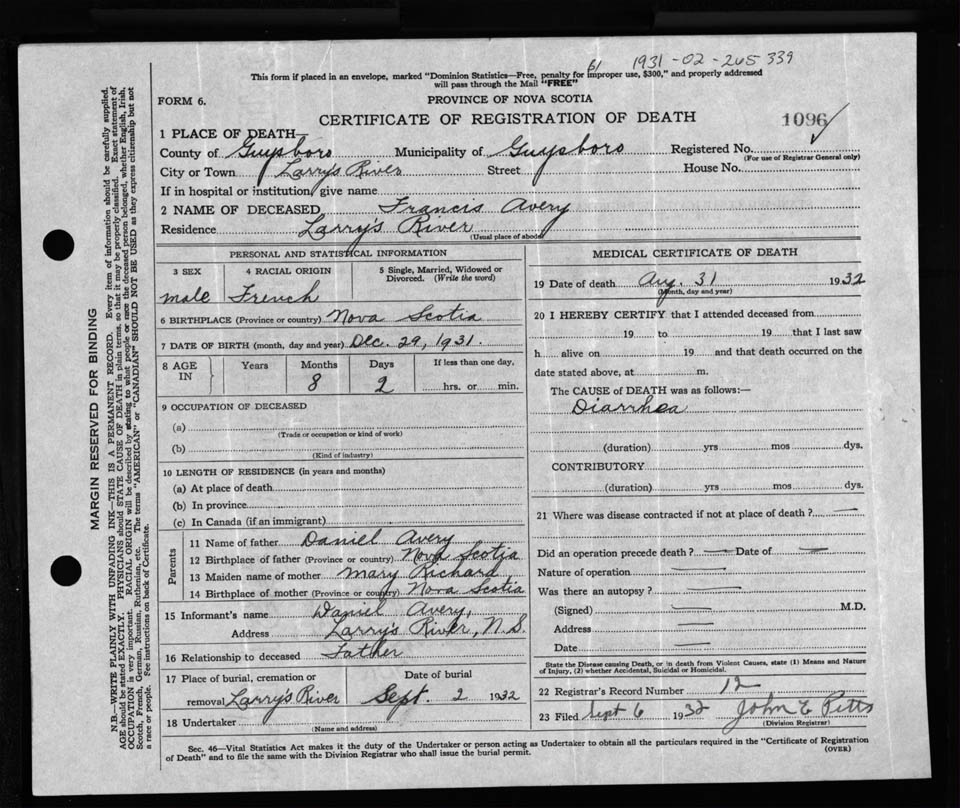 61 1931-02-265339
This form if placed in an envelope, marked "Dominion Statistics—Free, penalty for improper use, $300," and properly addressed
will pass through the Mail "FREE"
FORM 6.
PROVINCE OF NOVA SCOTIA
CERTIFICATE OF REGISTRATION OF DEATH
1096
1 PLACE OF DEATH—
County of Guysboro Municipality of Guysboro Registered No.
(For use of Registrar General only)
City or Town Larry's River Street House No.
If in hospital or institution, give name
2 NAME OF DECEASED Francis Avery
Residence Larry's River
(Usual place of abode)
PERSONAL AND STATISTICAL INFORMATION
3 SEX 4 RACIAL ORIGIN 5 Single, Married, Widowed or
Divorced. (Write the word)
male French
6 BIRTHPLACE (Province or country) Nova Scotia
7 DATE OF BIRTH (month, day and year) Dec. 29, 1931.
8 AGE Years Months Days If less than one day,
IN 8 2 hrs. or min.
9 OCCUPATION OF DECEASED
(a)
(Trade or occupation or kind of work)
(b)
(Kind of industry)
10 LENGTH OF RESIDENCE (in years and months)
(a) At place of death
(b) In province
(c) In Canada (if an immigrant)
Parents
11 Name of father Daniel Avery
12 Birthplace of father (Province or country) Nova Scotia
13 Maiden name of mother Mary Richard
14 Birthplace of mother (Province or country) Nova Scotia
15 Informant's name Daniel Avery,
Address Larry's River, N.S.
16 Relationship to deceased Father
17 Place of burial, cremation or Date of burial
removal Larry's River Sept. 2 1932
18 Undertaker
(Name and address)
MEDICAL CERTIFICATE OF DEATH
19 Date of death Aug. 31 1932
(Month, day and year)
20 I HEREBY CERTIFY that I attended deceased from
19 to 19 that I last saw
h alive on 19 and that death occurred on the
date stated above, at m.
The CAUSE of DEATH was as follows:—
Diarrhea
(duration) yrs mos dys.
CONTRIBUTORY
(duration) yrs mos dys.
21 Where was disease contracted if not at place of death? —
Did an operation precede death? — Date of —
Nature of operation —
Was there an autopsy? —
(Signed) — M.D.
Address —
Date —
State the Disease causing Death, or in death from Violent Causes, state (1) Means and Nature
of Injury, (2) whether Accidental, Suicidal or Homicidal.
22 Registrar's Record Number 12
23 Filed Sept 6 1932 John E Pitts
(Division Registrar)
Sec. 46—Vital Statistics Act makes it the duty of the Undertaker or person acting as Undertaker to obtain all the particulars required in the "Certificate of Registration
of Death" and to file the same with the Division Registrar who shall issue the burial permit. (OVER)
MARGIN RESERVED FOR BINDING
N.B.—WRITE PLAINLY WITH UNFADING INK—THIS IS A PERMANENT RECORD. Every item of information should be carefully supplied.
AGE should be stated EXACTLY. PHYSICIANS should STATE CAUSE OF DEATH in plain terms, so that it may be properly classified. Exact statement of
OCCUPATION is very important. RACIAL ORIGIN will be described by stating to what people or race the deceased person belonged, whether English, Irish,
Scotch, French, German, Russian, Ruthenian, etc. The terms "AMERICAN" or "CANADIAN" SHOULD NOT BE USED as they express citizenship but not
a race or people. See instructions on back of Certificate.